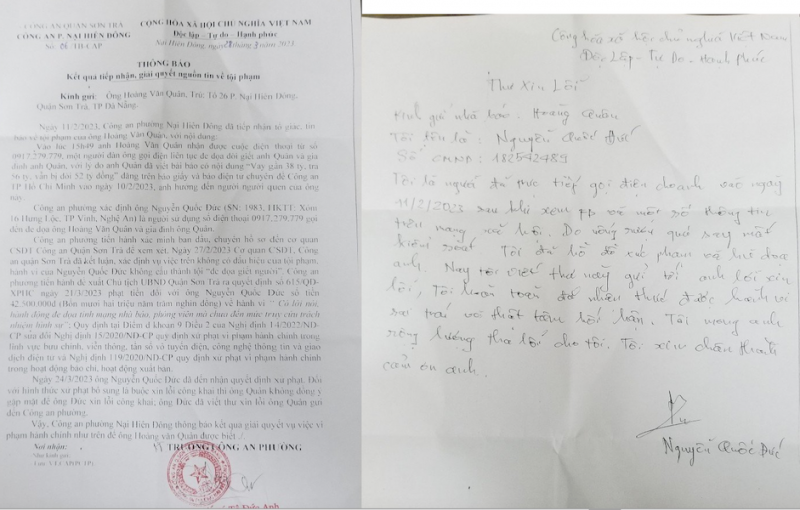 CÔNG AN QUẬN SƠN TRÀ
CÔNG AN P. NẠI HIÊN ĐÔNG
CỘNG HÒA XÃ HỘI CHỦ NGHĨA VIỆT NAM
Độc lập - Tự do - Hạnh phúc
Nại Hiên Đông, ngày tháng 3 năm 2023
THÔNG BÁO
Kết quả tiếp nhận, giải quyết nguồn tin về tội phạm
Kính gửi: Ông Hoàng Văn Quân, Trú: Tổ 26 P. Nại Hiên Đông,
Quận Sơn Trà, TP Đà Nẵng.
Ngày 11/2/2023, Công an phường Nại Hiên Đông đã tiếp nhận tố giác, tin
báo về tội phạm của ông Hoàng Văn Quân, với nội dung:
Vào lúc 15h49 anh Hoàng Văn Quân nhận được cuộc điện thoại từ số
0917.279.779, một người đàn ông gọi điện liên tục đe dọa đòi giết anh Quân và gia
đình anh Quân, với lý do anh Quân đã viết bài báo có nội dung "Vay gần 38 tỷ, trả
tỷ, vẫn bị đòi 52 tỷ đồng" đăng trên báo giấy và báo điện tử chuyên đề Công an
TP Hồ Chí Minh vào ngày 10/2/2023, ảnh hưởng đến người người quen của ông
này.
Công an phường xác định ông Nguyễn Quốc Đức (SN: 1983, HKTT: Xóm
16 Hưng Lộc, TP Vinh, Nghệ An) là người sử dụng số điện thoại 0917.279.779 gọi
đến đe dọa ông Hoàng Văn Quân và gia đình ông Quân.
Công an phường tiến hành xác minh ban đầu, chuyển hồ sơ đến cơ quan
CSĐT Công an Quận Sơn Trà để xem xét. Ngày 27/2/2023 Cơ quan CSĐT, Công
an quận Sơn Trà đã kết luận, xác định vụ việc trên không có dấu hiệu của tội phạm,
hành vi của Nguyễn Quốc Đức không cấu thành tội "đe dọa giết người". Công an
phường tiến hành đề xuất Chủ tịch UBND Quận Sơn Trà ra quyết định số 615/QĐ-
XPHC ngày 21/3/2023 phạt tiền đối với ông Nguyễn Quốc Đức số tiền
42.500.000đ (Bốn mươi hai triệu năm trăm nghìn đồng) về hành vi " Có lời nói,
hành động đe dọa tính mạng nhà báo, phóng viên mà chưa đến mức truy cứu trách
nhiệm hình sự"; Quy định tại Điểm d khoản 9 Điều 2 của Nghị định 14/2022/NĐ-
CP sửa đổi Nghị định 15/2020/NĐ-CP quy định xử phạt vi phạm hành chính trong
lĩnh vực bưu chính, viễn thông, tần số vô tuyến điện, công nghệ thông tin và giao
dịch điện tử và Nghị định 119/2020/NĐ-CP quy định xử phạt vi phạm hành chính
trong hoạt động báo chí, hoạt động xuất bản.
Ngày 24/3/2023 ông Nguyễn Quốc Đức đã đến nhận quyết định xử phạt. Đối
với hình thức xử phạt bổ sung là buộc xin lỗi công khai thì ông Quân không đồng ý
gặp mặt để ông Đức xin lỗi công khai; ông Đức đã viết thư xin lỗi ông Quân gửi
đến Công an phường.
Vậy, Công an phường Nại Hiên Đông thông báo kết quả giải quyết vụ việc vi
phạm hành chính như trên để ông Hoàng văn Quân được biết ./.
Nơi nhận:
TRƯỞNG CÔNG AN PHƯỜNG
Như kính gửi
Cộng hòa xã hội chủ nghĩa Việt Nam
Độc Lập - Tự Do - Hạnh Phúc
Thư Xin Lỗi
Kính gửi nhà báo. Hoàng Quân
Tôi tên là: Nguyễn Quốc Đức
Số CMND: 182542489
Tôi là người đã trực tiếp gọi điện doanh vào ngày
11/2/2023 sau khi xem và một số thông tin
trên mạng xã hội. Do nóng quá say mất
kiểm soát. Tôi đã hồ đồ xúc phạm và hù dọa
anh. Nay tôi viết thư này gửi tới anh lời xin
lỗi, Tôi hoàn toàn đã nhận thức được hành vi
sai trái và thật tâm hối hận. Tôi mong anh
rộng lượng tha lỗi cho tôi. Tôi xin chân thành
cảm ơn anh.
Nguyễn Quốc Đức